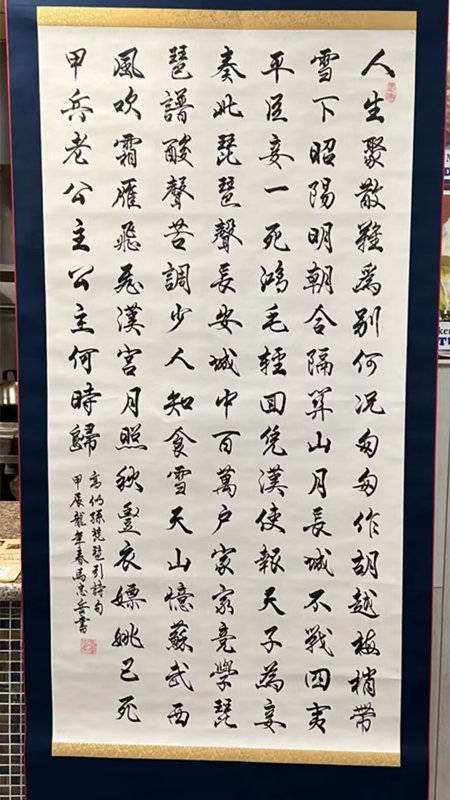 人生聚散難為別何況匆匆作胡越梅梢帶
雪下昭陽明朝今隔關山月長城不戰四夷
平臣妾一死鴻毛輕回凭漢使報天子為妾
奏此琵琶聲長安城中百萬戶家家竞學琵
琶譜酸聲苦調少人知食雪天山憶蘇武西
風吹霜雁飛飛漢宮月照秋螢衣嫖姚已死
甲兵老公主公主何時歸
高似孫琵琶引詩句
甲辰龍年春馬忠岳書